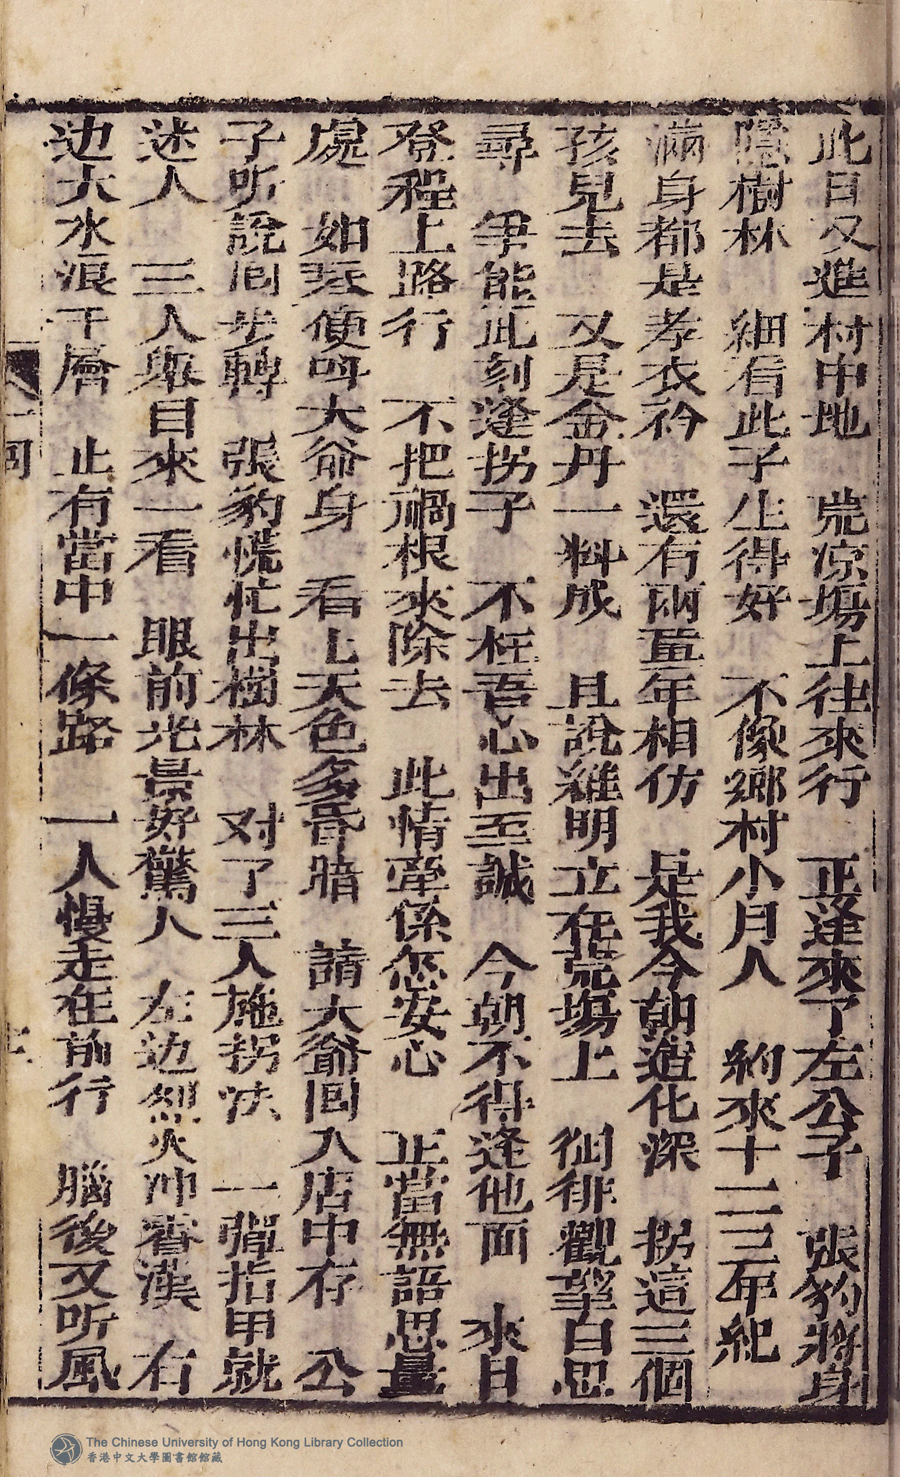 此日又進村中地　荒凉塲上往來行　正逢來了左公子　張豹將身
隱樹林　細看此子生得好　不像鄉村小月人　約來十二三年紀
滿身都是孝衣衿　還有兩童年相仿　是我今朝造化深　拐這三個
孩兒去　又是金丹一料成　且說維明立在荒塲上　徊徘觀望自思
尋　爭能此刻逢拐子　不枉吾心出至誠　今朝不得逢他面　來日
登程上路行　不把禍根來除去　此情牽係怎安心　正當無語思量
處　如琴便呌大爺身　看上天色多昏暗　請大爺囘入店中存　公
子听說囘步轉　張豹慌忙出樹林　对了三人施拐法　一彈指甲就
迷人　三人舉目來一看　眼前光景好驚人　左边烈火冲霄漢　右
边大水浪千層　止有當中一條路　一人慢走在前行　腦後又听風
囘
The Chinese University of Hong Kong Library Collection
香港中文大學圖書館館藏